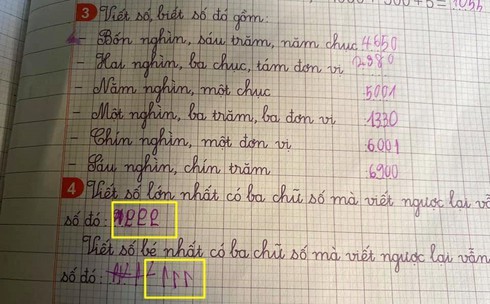 3 Viết số, biết số đó gồm:
- Bốn nghìn, sáu trăm, năm chục 4650
- Hai nghìn, ba chục, tám đơn vị 2980
- Năm nghìn, một chục 5001
- Một nghìn, ba trăm, ba đơn vị 1330
- Chín nghìn, một đơn vị 6001
- Sáu nghìn, chín trăm 6900
4 Viết số lớn nhất có ba chữ số mà viết ngược lại vẫ
số đó:
Viết số bé nhất có ba chữ số mà viết ngược lại vẫn
số đó: 111